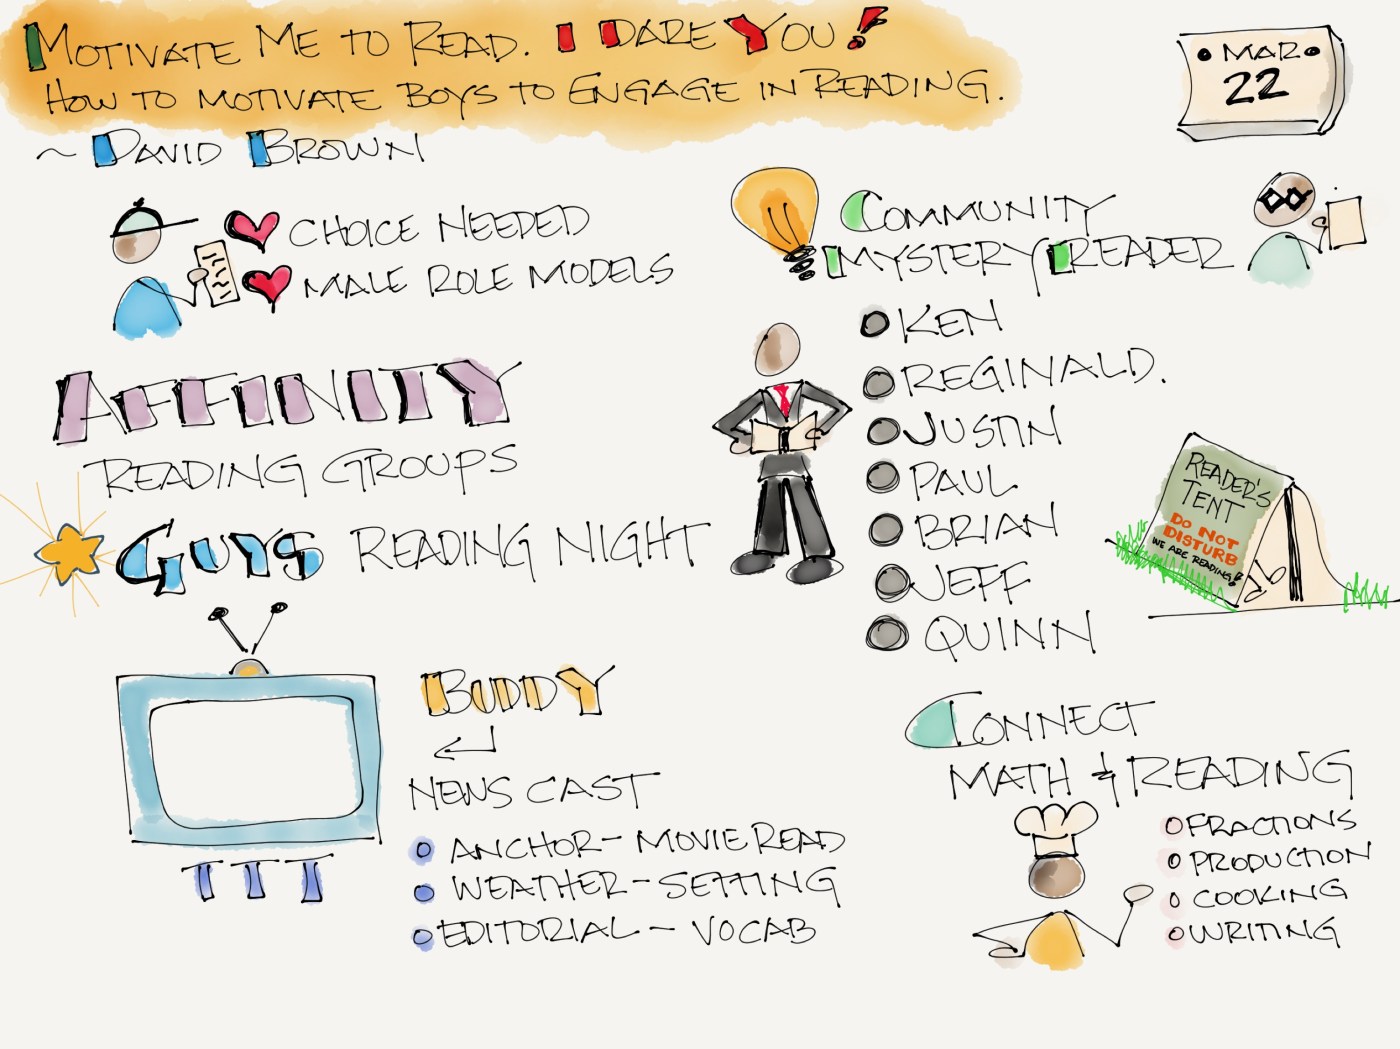 MOTIVATE ME TO READ. I DARE YOU!
HOW TO MOTIVATE BOYS TO ENGAGE IN READING.
~ DAVID BROWN
MAR
22
CHOICE NEEDED
MALE ROLE MODELS
AFFINITY
READING GROUPS
GUYS READING NIGHT
BUDDY
NEWS CAST
ANCHOR - MOVIE READ
WEATHER - SETTING
EDITORIAL - VOCAB
COMMUNITY
MYSTERY READER
KEN
REGINALD.
JUSTIN
PAUL
BRIAN
JEFF
QUINN
READER'S
TENT
DO NOT
DISTURB
WE ARE READING!
CONNECT
MATH & READING
FRACTIONS
PRODUCTION
COOKING
WRITING